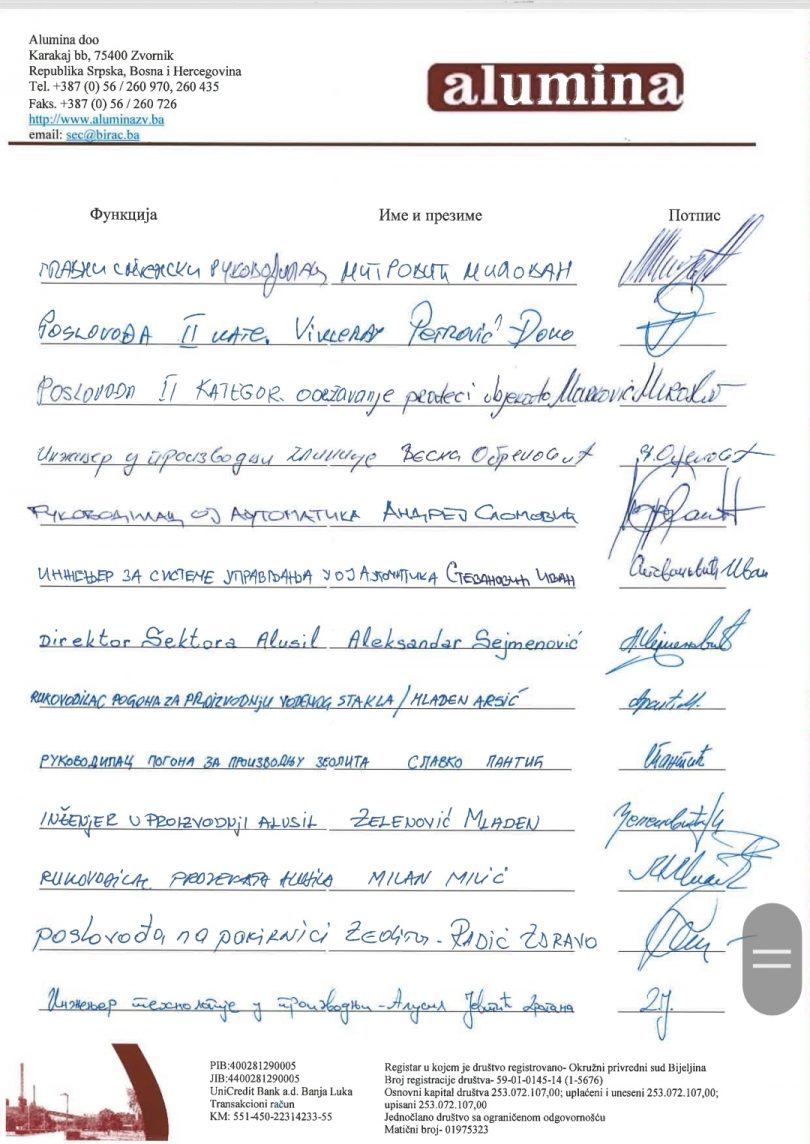 Alumina doo
Karakaj bb, 75400 Zvornik
Republika Srpska, Bosna i Hercegovina
Tel. +387 (0) 56 / 260 970, 260 435
Faks. +387 (0) 56 / 260 726
http://www.aluminazv.ba
email: sec@birac.ba
alumina
Функција Име и презиме Потпис
ГЛАВНИ СМЈЕНСКИ РУКОВОДИЛАЦ МИТРОВИЋ МИЛОВАН
POSLOVOĐA II KATE. PETROVIĆ ĐOKO
POSLOVOĐA II KATEGOR. održavanje prateći objekato MARKOVIĆ MIROSLAV
Инжењер у производњи глинице Весна Обреновић
РУКОВОДИЛАЦ ОЈ АУТОМАТИКА АНДРЕЈ СЛОМОВИЋ
ИНЖЕЊЕР ЗА СИСТЕМЕ УПРАВЉАЊА У ОЈ АУТОМАТИКА СТЕВАНОВИЋ ИВАН Стевановић Иван
Direktor Sektora Alusil Aleksandar Sejmenović
RUKOVODILAC POGONA ZA PROIZVODNJU VODENOG STAKLA / MLADEN ARSIĆ
РУКОВОДИЛАЦ ПОГОНА ЗА ПРОИЗВОДЊУ ЗЕОЛИТА СЛАВКО ПАНТИЋ Пантић
INŽENJER U PROIZVODNJI ALUSIL ŽELENOVIĆ MLADEN
RUKOVODILAC PROJEKATA ALUSILA MILAN MILIĆ
poslovođa na pakirnici ZEOLITA - RADIĆ ZDRAVO
Инжењер технологије у производњи - Алусил Јевтић Драгана
PIB:400281290005
JIB:4400281290005
UniCredit Bank a.d. Banja Luka
Transakcioni račun
KM: 551-450-22314233-55
Registar u kojem je društvo registrovano- Okružni privredni sud Bijeljina
Broj registracije društva- 59-01-0145-14 (1-5676)
Osnovni kapital društva 253.072.107,00; uplaćeni i uneseni 253.072.107,00;
upisani 253.072.107,00
Jednočlano društvo sa ograničenom odgovornošću
Matični broj- 01975323